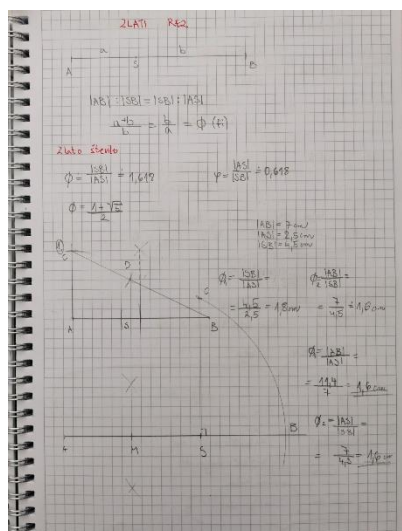 ZLATI REZ
a b
A S B
|AB| : |SB| = |SB| : |AS|
a+b/b = b/a = Φ (fi)
Zlato število
Φ = |SB|/|AS| = 1,618
φ = |AS|/|SB| ≐ 0,618
Φ = 1+√5/2
|AB| = 7 cm
|AS| = 2,5 cm
|SB| = 4,5 cm
D
C
A S B
Φ₁ = |SB|/|AS| =
= 4,5/2,5 = 1,8 cm
Φ₂ = |AB|/|SB| =
= 7/4,5 ≐ 1,6 cm
Φ₁ = |SB|/|AS| =
= 11,4/7 = 1,6 cm
M S B
Φ₂ = |AS|/|SB| =
= 7/4,5 = 1,6 cm